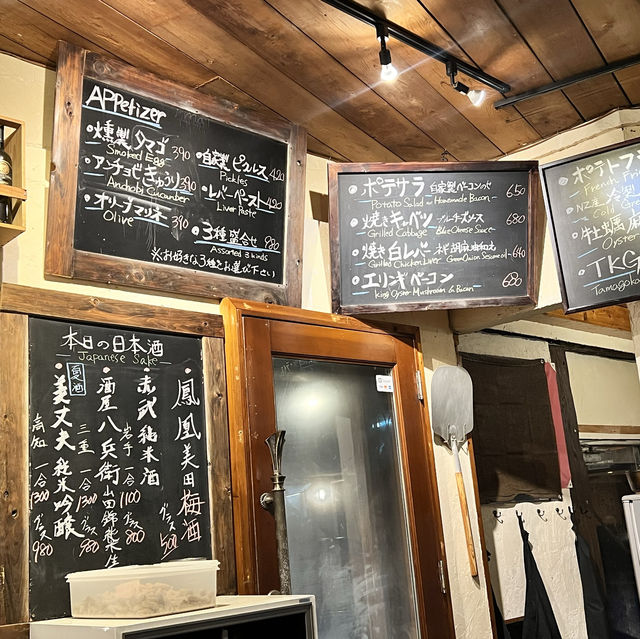 Appetizer
・燻製タマゴ 390
Smoked Egg
・アンチョビきゅうり 390
Anchobi Cucumber
・オリーブマリネ 390
Olive
・自家製ピクルス 420
Pickles
・レバーペースト 420
Liver Paste
・3種盛合せ 980
Assorted 3 kinds
※お好きな3種をお選び下さい
・ポテサラ 自家製ベーコンのせ 650
Potato Salad ~Homemade Bacon~
・焼きキャベツ ブルーチーズソース 680
Grilled Cabbage Blue Cheese Sauce
・焼き白レバー ネギ胡麻
Grilled Chicken Liver Green Onion Sesame oil 640
・エリンギベーコン
King Oyster Mushroom & Bacon 600
・ポテトフ
French Fri
NZ産
Cold Gre
・牡蠣
Oyster
・TKG
Tamagoka
本日の日本酒
Japanese Sake
・鳳凰美田 梅酒
グラス 500
・赤武 純米酒
岩手 一合 1100 グラス 800
・酒屋八兵衛 山田錦
三重 一合 1300 グラス 980
・美丈夫 純米吟醸
夏酒
高知 一合 1300 グラス 980